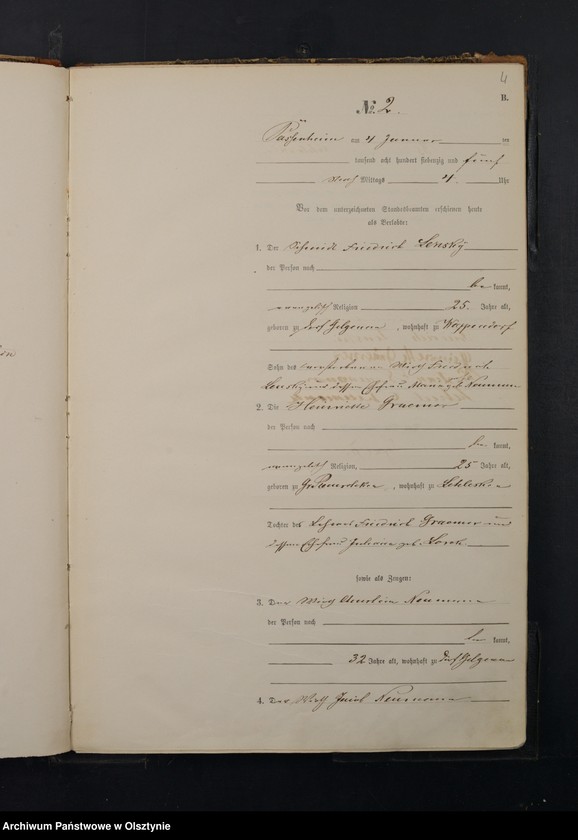 4
B.
No. 2.
Passenheim am 4 Januar
tausend acht hundert siebenzig und fünf
Nach Mittags 4. Uhr
Vor dem unterzeichneten Standesbeamten erschienen heute
als Verlobte:
1. Der Schmidt Friedrich Lensky
der Person nach
be kannt,
evangelisch Religion 25. Jahre alt,
geboren zu Dorf Gilgenau, wohnhaft zu
Sohn des verstorbenen Wirth Friedrich
Lensky und dessen Ehefrau geb. Neumann
2. Die Henriette Graemer
der Person nach
be kannt,
evangelisch Religion, 25 Jahre alt,
geboren zu Gr, wohnhaft zu
Tochter des Lehrers Friedrich Graemer und
dessen Ehefrau geb.
sowie als Zeugen:
3. Der Wirth Neumann
der Person nach
be kannt,
32 Jahre alt, wohnhaft zu Dorf Gilgenau
4. Der Wirth Neumann
Archiwum Państwowe w Olsztynie